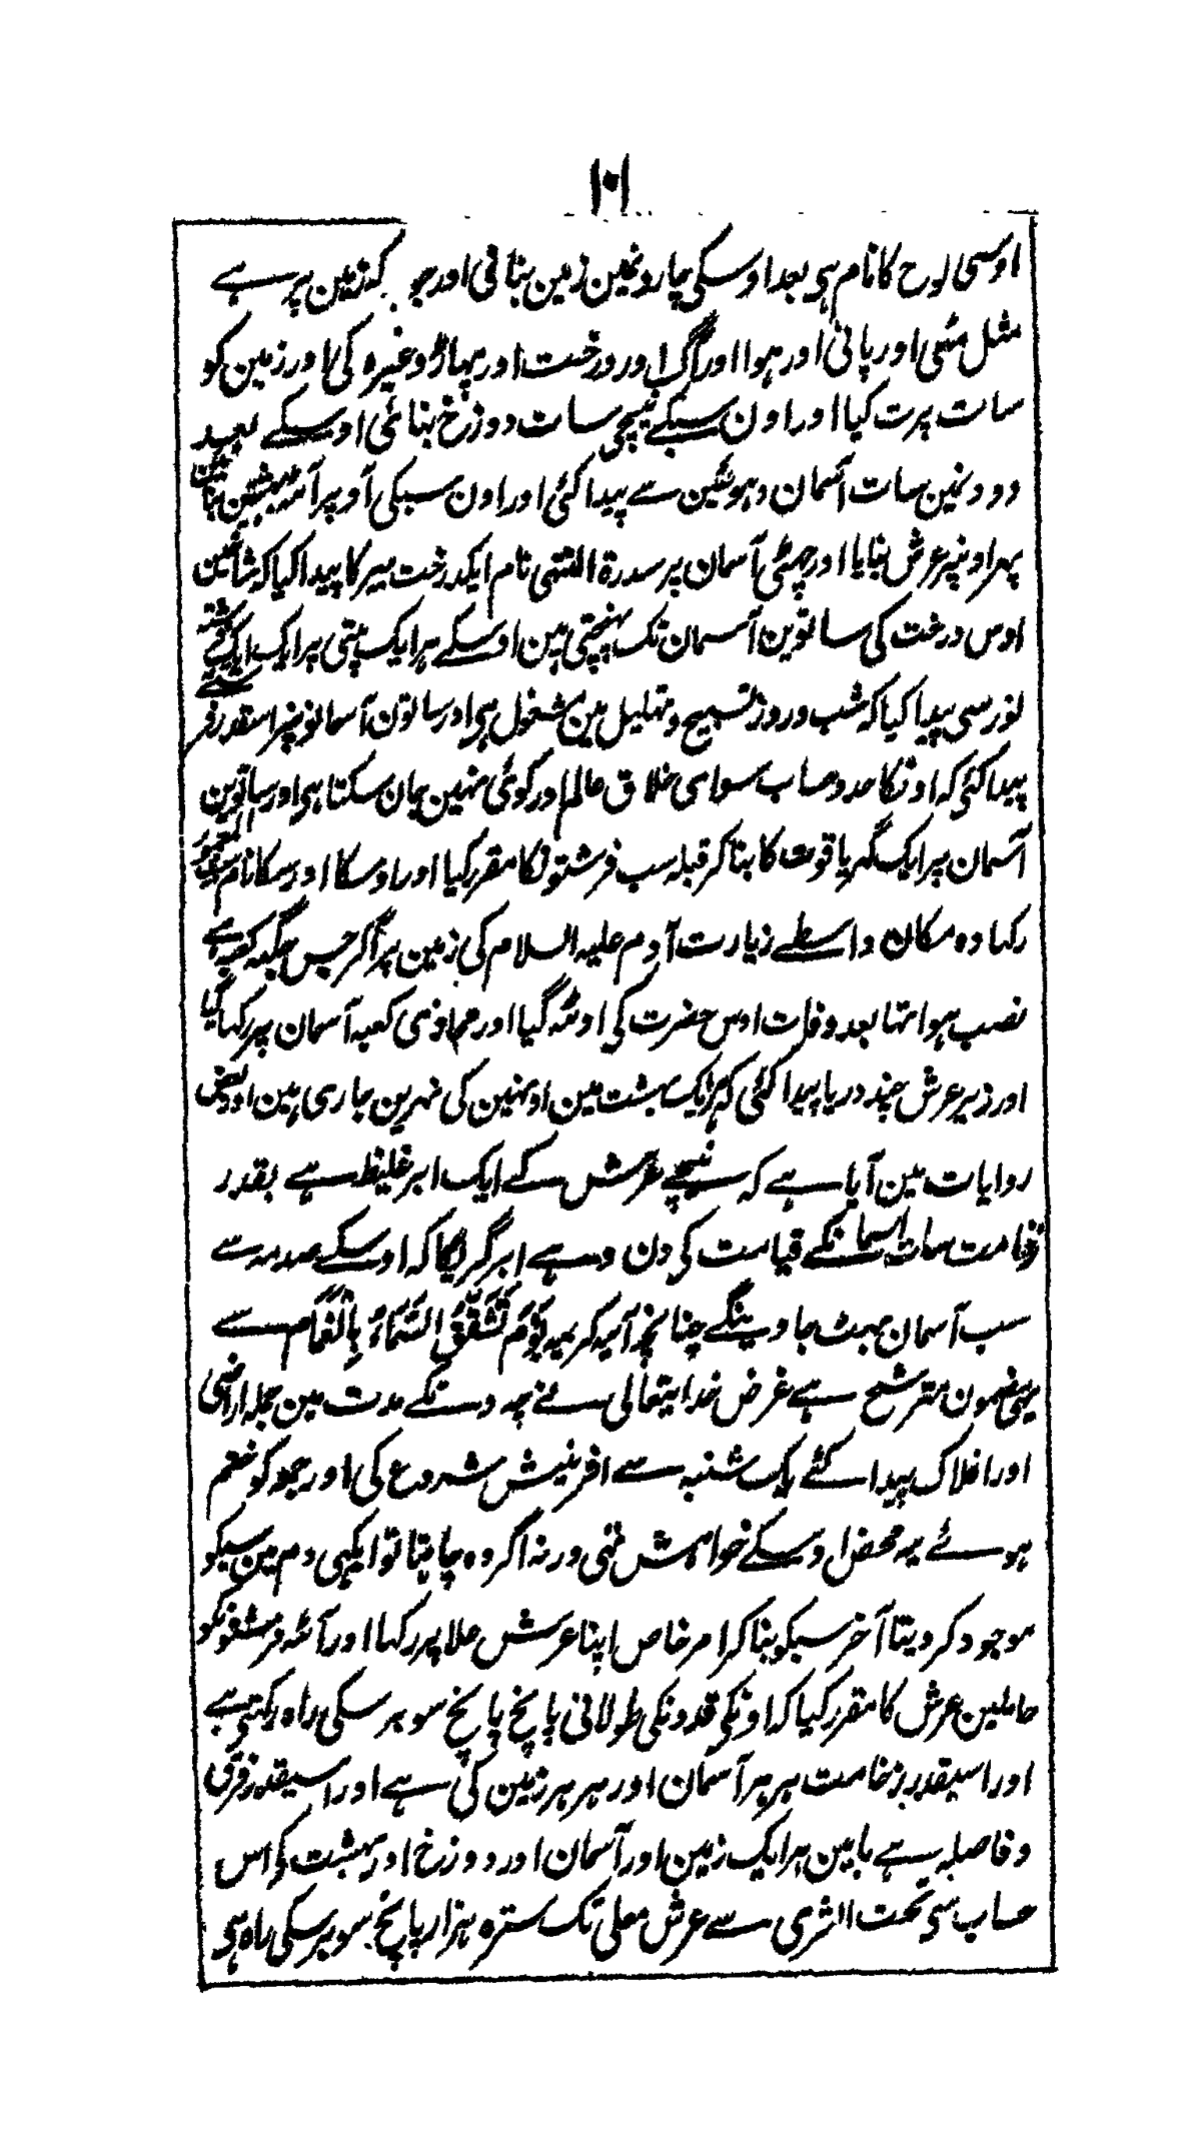 ۱۰۱
اوسی لوح کا نام ہی بعد اوسکی چار دنمین زمین بنائی اور جو کہ زمین پر ہے
مثل مٹی اور پانی اور ہوا اور آگ اور درخت اور پہاڑ وغیرہ کی اور زمین کو
سات پرت کیا اور اون سبکے نیچی سات دوزخ بنائی اوسکے بعد
دو دنمین سات آسمان دہوئین سے پیدا کئی اور اون سبکی اوپر آٹھ بہشتین بنائین
پہر اونپر عرش بنایا اور چہٹی آسمان پر سدرۃ المنتہی نام ایکدرخت بیر کا پیدا کیا کہ شاخین
اوس درخت کی ساتوین آسمان تک پہنچتی ہین اوسکے ہر ایک پتی پر ایک ایک فرشتہ
نور سی پیدا کیا کہ شب و روز تسبیح و تہلیل مین مشغول ہی اور ساتون آسمانونپر اسقدر فرشتے
پیدا کئی کہ اونکا حد و حساب سوای خلاق عالم اور کوئی نہین جان سکتا ہی اور ساتوین
آسمان پر ایک گہر یاقوت کا بنا کر قبلہ سب فرشتونکا مقرر کیا اور اوسکا نام بیت المعمور
رکہا وہ مکان واسطے زیارت آدم علیہ السلام کی زمین پر آ کر جس جگہ کعبہ ہے
نصب ہوا تہا بعد وفات اوس حضرت کی اوٹھ گیا اور محاذی کعبہ آسمان پر رکہا گیا
اور زیر عرش چند دریا پیدا کئی کہ ہر ایک بہشت مین اونہین کی نہرین جاری ہین اور بعض
روایات مین آیا ہے کہ نیچے عرش کے ایک ابر غلیظ ہے بقدر
ضخامت سات آسمانکے قیامت کی دن وہے ابر گریگا کہ اوسکے صدمہ سے
سب آسمان پہٹ جاوینگے چنانچہ آیہ کریمہ یَوْمَ تَشَقَّقُ السَّمَاءُ بِالْغَمَامِ سے
یہی مضمون مترشح ہے غرض خدایتعالی نے چہ دنکے مدت مین جملہ اراضی
اور افلاک پیدا کئے یک شنبہ سے افرینیش شروع کی اور جمعہ کو ختم
ہوئے یہ محض اوسکے خواہش تہی ورنہ اگر وہ چاہتا تو ایکہی دم مین سبکو
موجود کر دیتا آخر سبکو بنا کر امر خاص اپنا عرش علا پر رکہا اور آٹھ فرشتونکو
حاملین عرش کا مقرر کیا کہ اونکی قدونکی طولانی پانچ پانچ سو برسکی راہ رکہتی ہے
اور اسیقدر ضخامت ہر ہر آسمان اور ہر ہر زمین کی ہے اور اسیقدر فرق
و فاصلہ ہے مابین ہر ایک زمین اور آسمان اور دوزخ اور بہشت کو اس
حساب سی تحت الثری سے عرش معلی تک سترہ ہزار پانچ سو برسکی راہ ہی